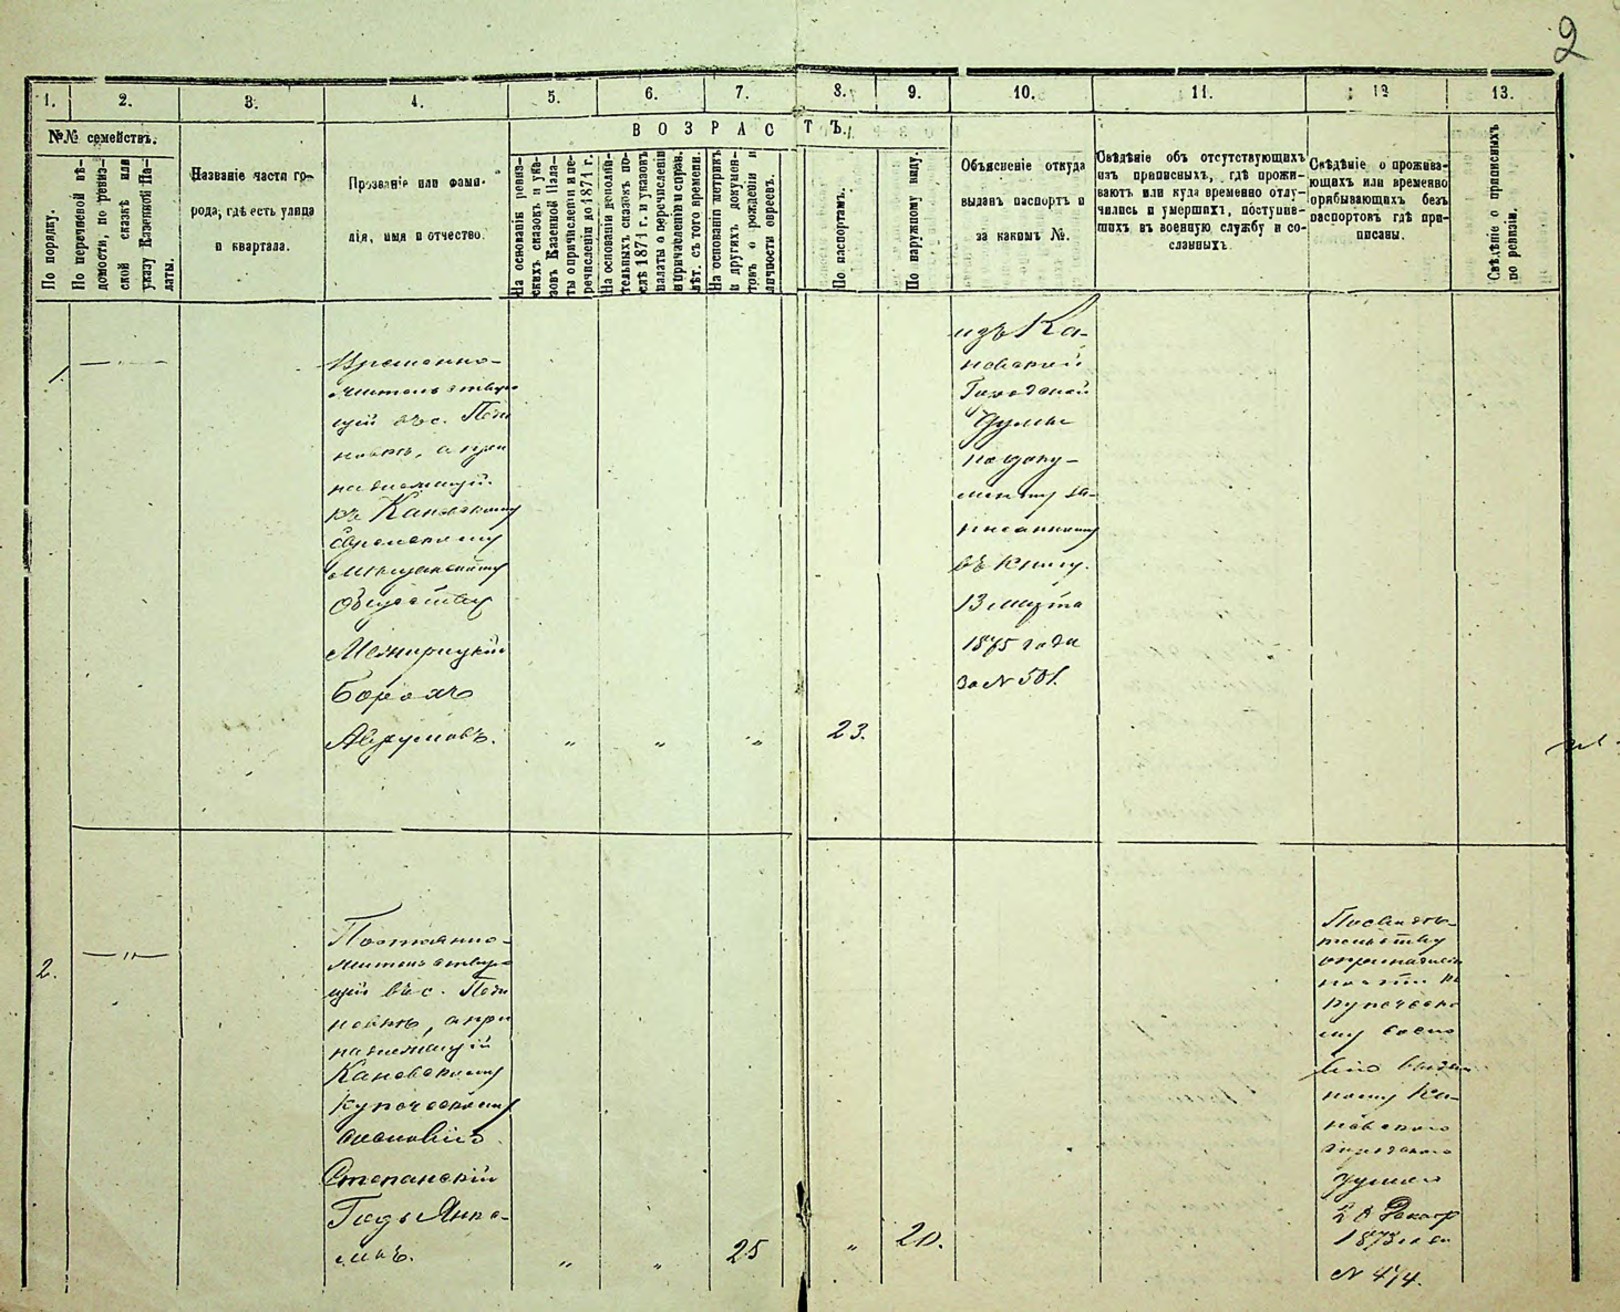 2
1.
2.
3.
4.
5.
6.
7.
8.
9.
10.
11.
12
13.
№№ семействъ.
ВОЗРАСТЪ.
По порядку.
По перечневой вѣ-
домости, по ревиз-
ской сказкѣ или
указу Казенной Па-
латы.
Названіе части го-
рода, гдѣ есть улица
и квартала.
Прозваніе или фами-
лія, имя и отчество.
На основаніи ревиз-
скихъ сказокъ и ука-
зовъ Казенной Пала-
ты о причисленіи и пе-
речисленіи до 1871 г.
На основаніи дополни-
тельныхъ сказокъ по-
слѣ 1871 г. и указовъ
палаты о перечисленіи
и причисленіи и справ.
лѣт. съ того времени.
На основаніи метрикъ
и другихъ докумен-
товъ о рожденіи и
личности евреевъ.
По паспортамъ.
По наружному виду.
Объясненіе откуда
выданъ паспортъ и
за какимъ №.
Свѣдѣніе объ отсутствующихъ
изъ приписныхъ, гдѣ прожи-
ваютъ или куда временно отлу-
чились и умершихъ, поступив-
шихъ въ военную службу и со-
сланныхъ.
Свѣдѣніе о прожива-
ющихъ или временно
прибывающихъ безъ
паспортовъ гдѣ при-
писаны.
Свѣдѣніе о приписныхъ
по ревизіи.
1.
— " —
Временно-
жительствую
щій въ с. Пото
, а при
надлежащій
къ Каневскому
Еврейскому
мѣщанскому
Обществу
Межирицкій
Борохъ
Аврумовъ.
"
"
"
23.
изъ Ка-
невской
Городской
Думы
по доку-
менту за-
писанному
въ книгу
13 марта
1875 года
за № 501.
2.
— " —
Постоянно-
жительствую
щій въ с.
, а при
надлежащій
Каневскому
купеческому
сословію
Степанскій
Гадъ Янке-
левъ.
"
"
25
"
20.
По свидѣ-
тельству
о принадлеж
ности къ
купеческо
му сосло
вію выдан
ному Ка-
невскою
городскою
думою
20 Декабр
1873 года
№ 474.